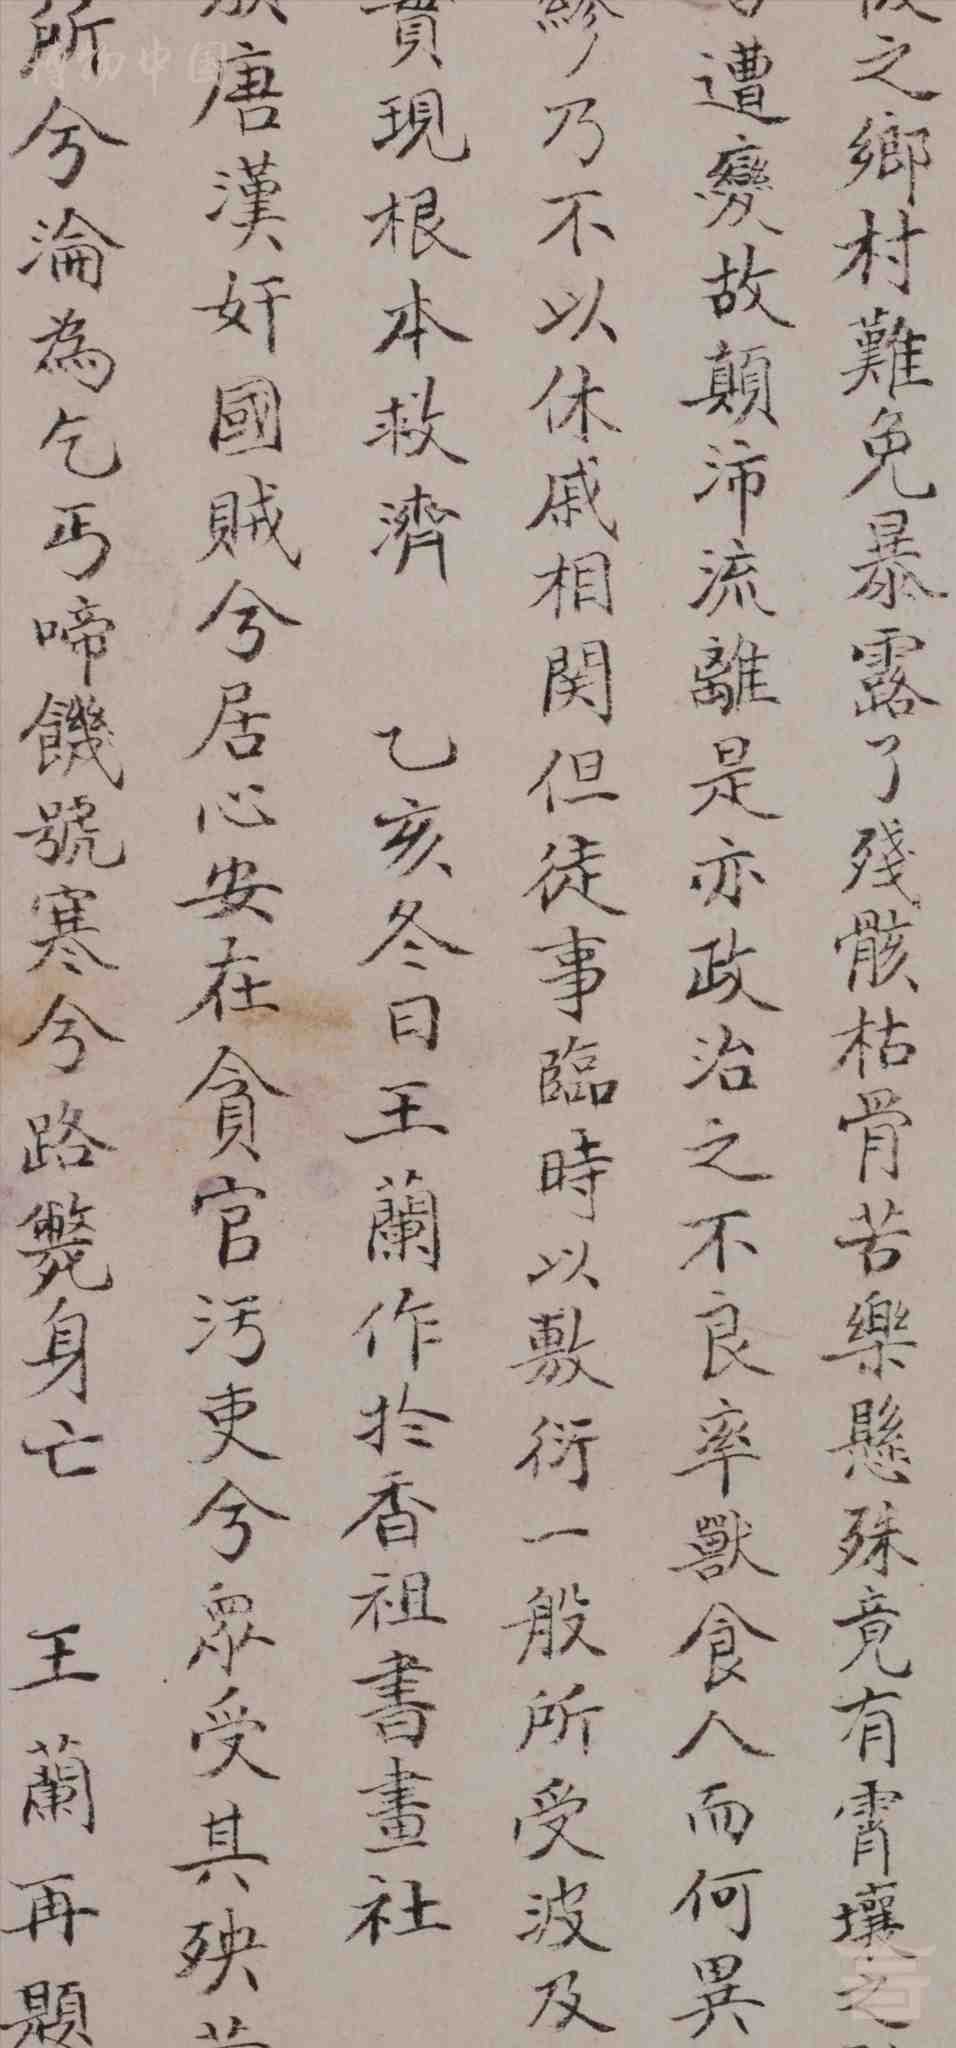 之鄉村難免暴露了殘骸枯骨苦樂懸殊竟有霄壤之
遭變故顛沛流離是亦政治之不良率獸食人而何異
繆乃不以休戚相関但徒事臨時以敷衍一般所受波及
實現根本救濟 乙亥冬日王蘭作於香祖書畫社
唐漢奸國賊兮居心安在貪官污吏兮眾受其殃
所兮淪為乞丐啼饑號寒兮路斃身亡 王蘭再題